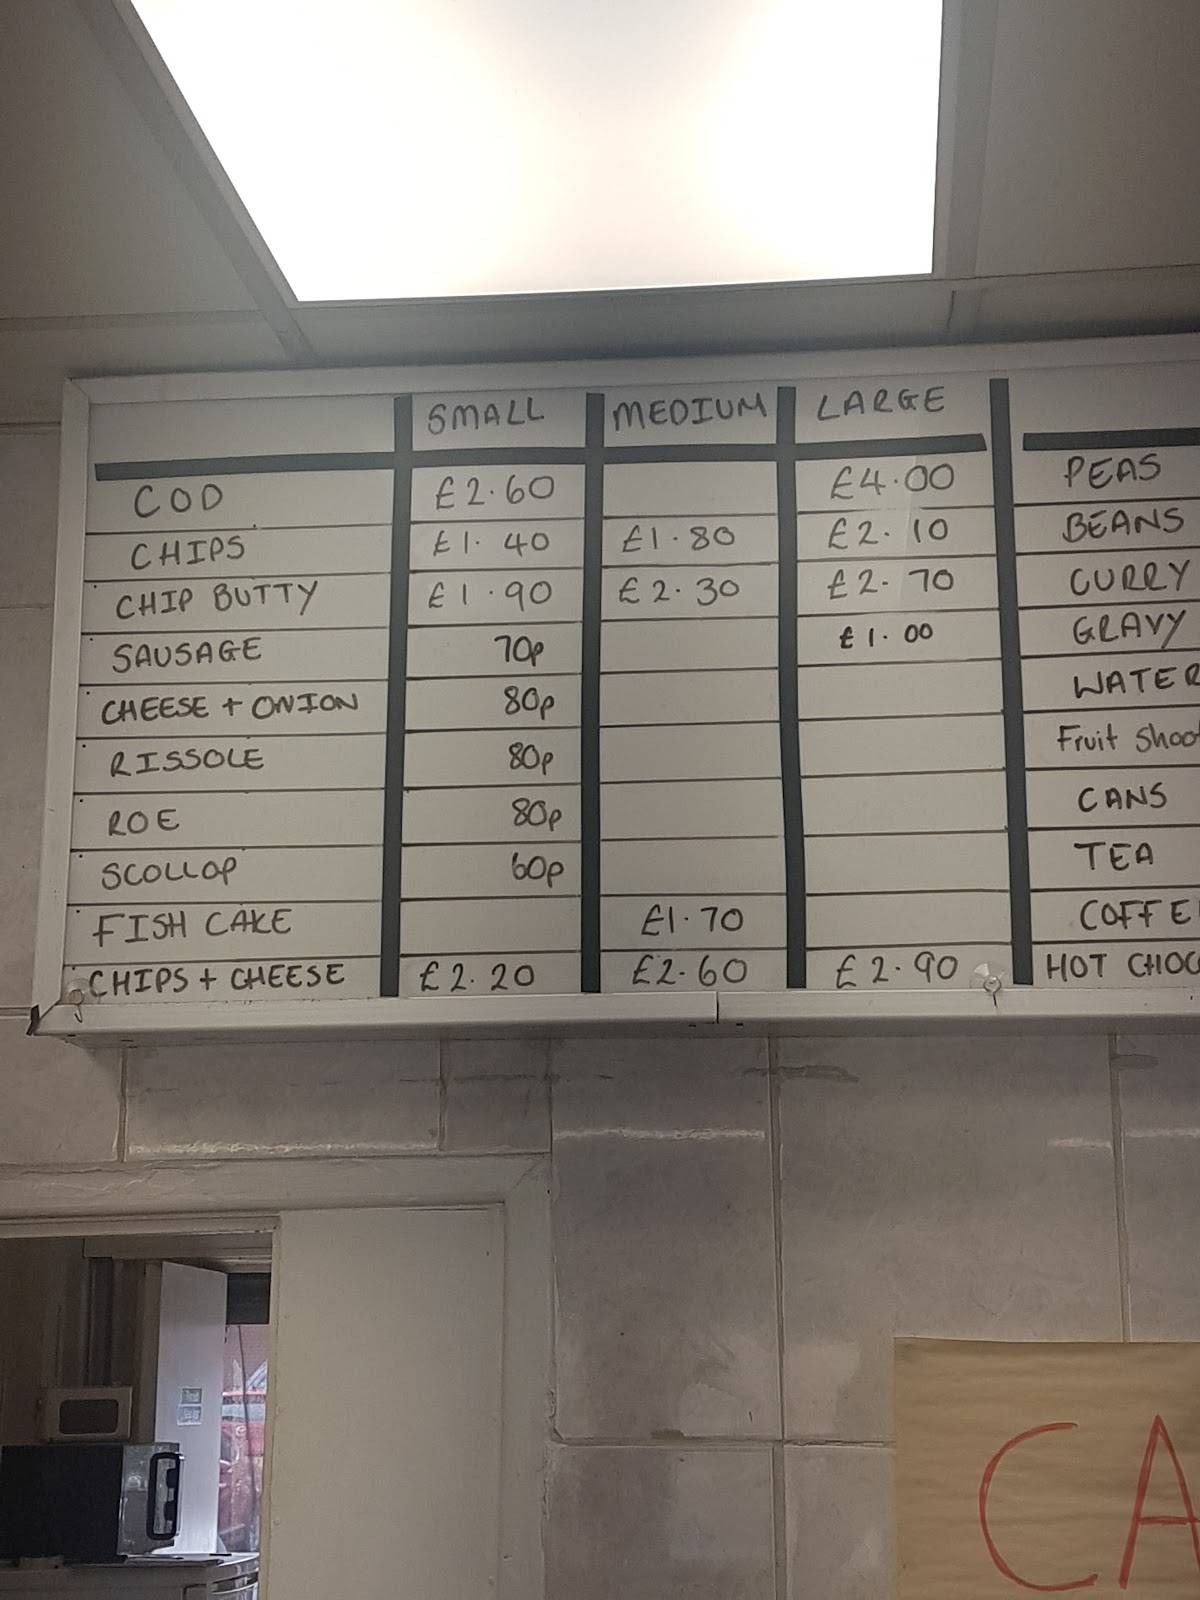 SMALL MEDIUM LARGE
COD £2.60 £4.00 PEAS
CHIPS £1.40 £1.80 £2.10 BEANS
CHIP BUTTY £1.90 £2.30 £2.70 CURRY
SAUSAGE 70p £1.00 GRAVY
CHEESE + ONION 80p WATER
RISSOLE 80p Fruit Shoo
ROE 80p CANS
SCOLLOP 60p TEA
FISH CAKE £1.70 COFFE
CHIPS + CHEESE £2.20 £2.60 £2.90 HOT CHOC
CA